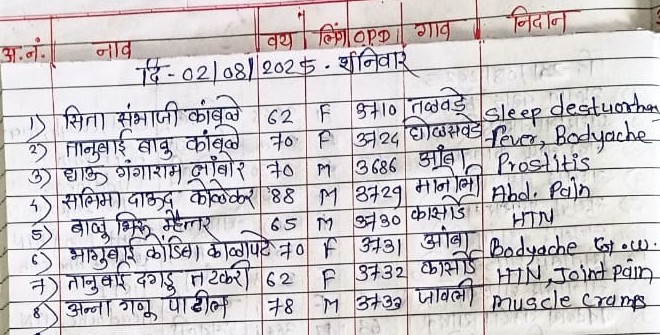 अ.नं. नाव वय लिंग OPD गाव निदान
दि - 02/08/2025 . शनिवार
1) सिता संभाजी कांबळे 62 F 3710 तळवडे Sleep desturban
2) तानुबाई बाबु कांबळे 70 F 3724 घोळसवडे Fever, Bodyache
3) धाकु गंगाराम लांबोर 70 M 3686 आंबा Prostitis
4) सलिमा दाऊद कोळेकर 88 M 3729 मानोली Abd. Pain
5) बाळू भिरू म्हेत्तर 65 M 3730 कासार्डे HTN
6) भागुबाई कोंडिबा काळापटे 70 F 3731 आंबा Bodyache
7) तानुबाई दगडू तटकरी 62 F 3732 कासार्डे HTN, Joint pain
8) अन्ना गणू पाटील 78 M 3733 जावली muscle cramps